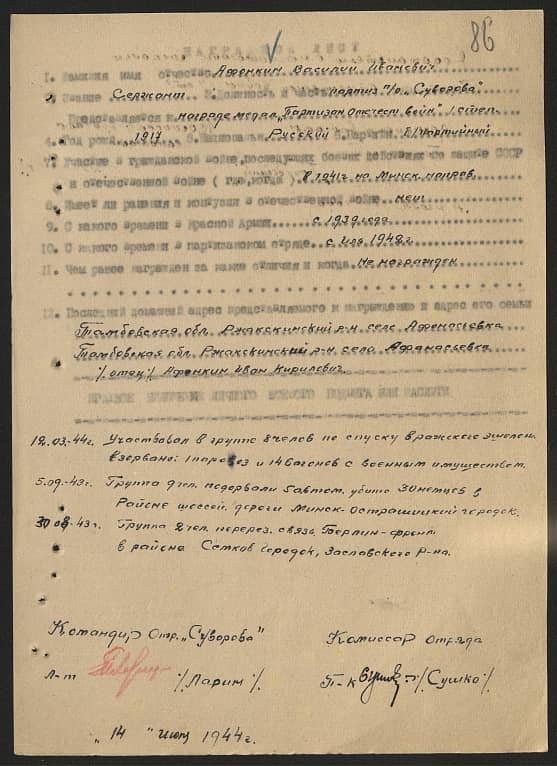 86
1. Фамилия имя отчество Афенкин Василий Иванович
2. Звание Сержант 3. Должность и часть партиз п/о "Суворова"
Представляется к награде медал. "Партизан Отечест. войн" I степ.
4. Год рожд. 1917 5. Национальн. Русский 6. Партийн. б/партийный
7. Участие в гражданской войне, последующих боевых действиях по защите СССР
и отечественной войне (где, когда) В 1941г на Минск. направ.
8. Имеет ли ранения и контузии в отечественной войне нет
9. С какого времени в Красной Армии с 1939 года
10. С какого времени в партизанском отряде с
11. Чем ранее награжден за какие отличия и когда Не награжден
12. Последний домашний адрес представляемого к награждению и адрес его семьи
Тамбовская обл. Ржакскинский р-н село Афанасьевка
Тамбовская обл. Ржакскинский р-н село Афанасьевка
/отец/ Афенкин Иван Кирилович
КРАТКОЕ ИЗЛОЖЕНИЕ ЛИЧНОГО БОЕВОГО ПОДВИГА ИЛИ ЗАСЛУГИ
12.03.44г. Участвовал в группе 8 челов по спуску вражеского эшелона
взорвано: 1 паровоз и 14 вагонов с военным имуществом.
5.09.-43г. Группа 9 чел. подорвали 5 автом. убито 30 немцев в
Районе шоссей. дороги Минск-Острашицкий городок.
30 08.-43г. Группа 2 чел. перерез. связь Берлин-фронт
в районе Сёмков Городок, Заславского Р-на.
Командир Отр. "Суворова" Комиссар отряда
Л-т /Ларин/. П-к /Сушко/.
"14" Июн 1944г.